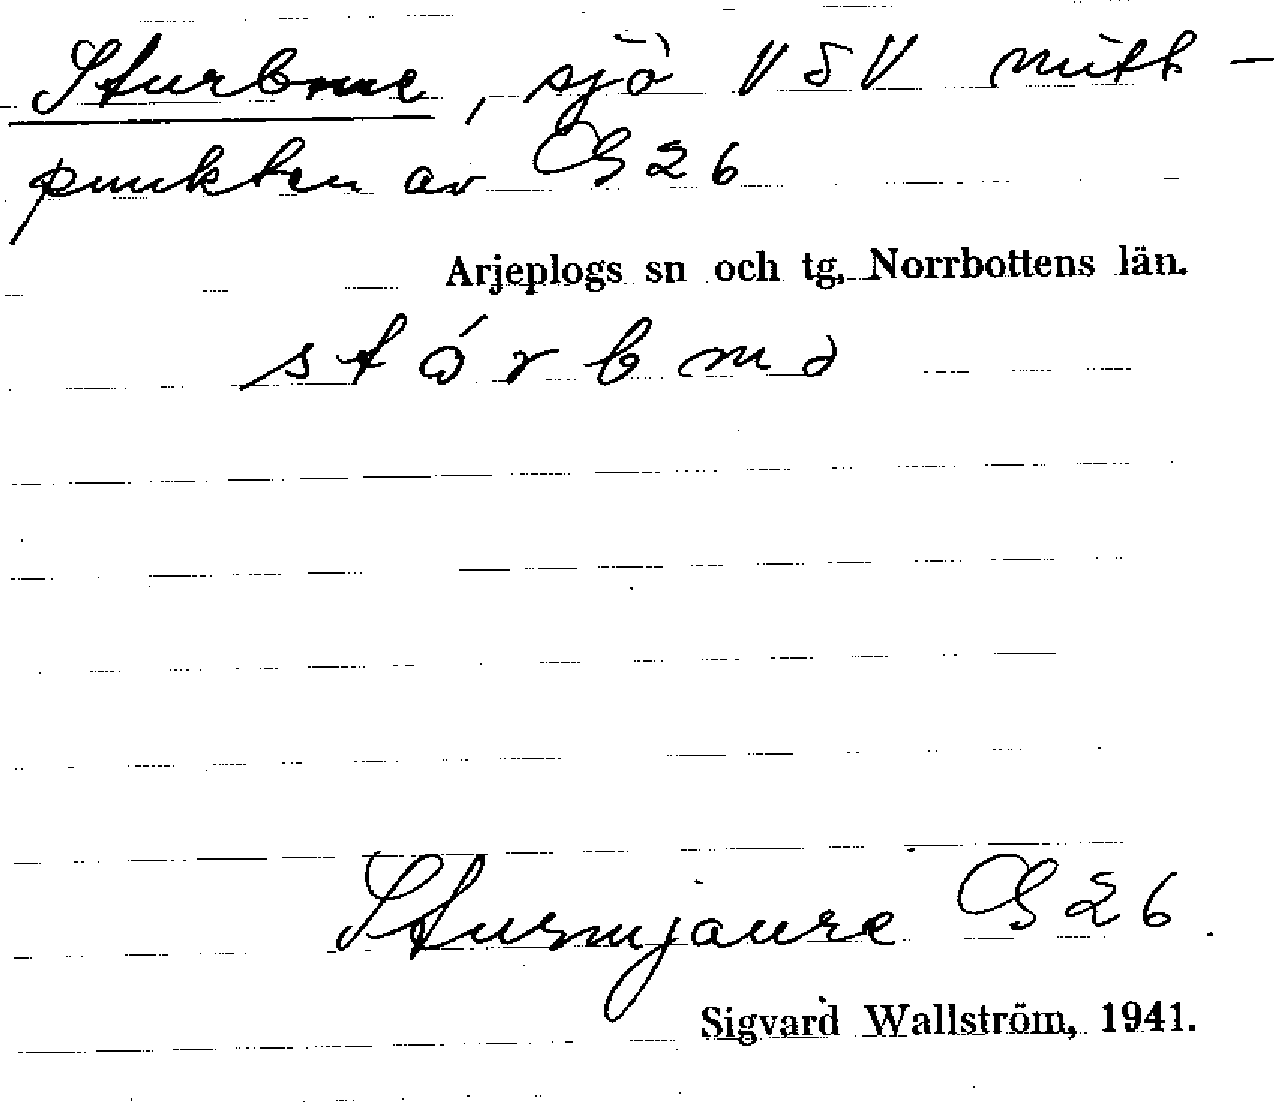 Sturbme, sjö VSV mitt-
punkten av G 26
Arjeplogs sn och tg, Norrbottens län.
stórbmə
Sturmjaure G 26.
Sigvard Wallström, 1941.